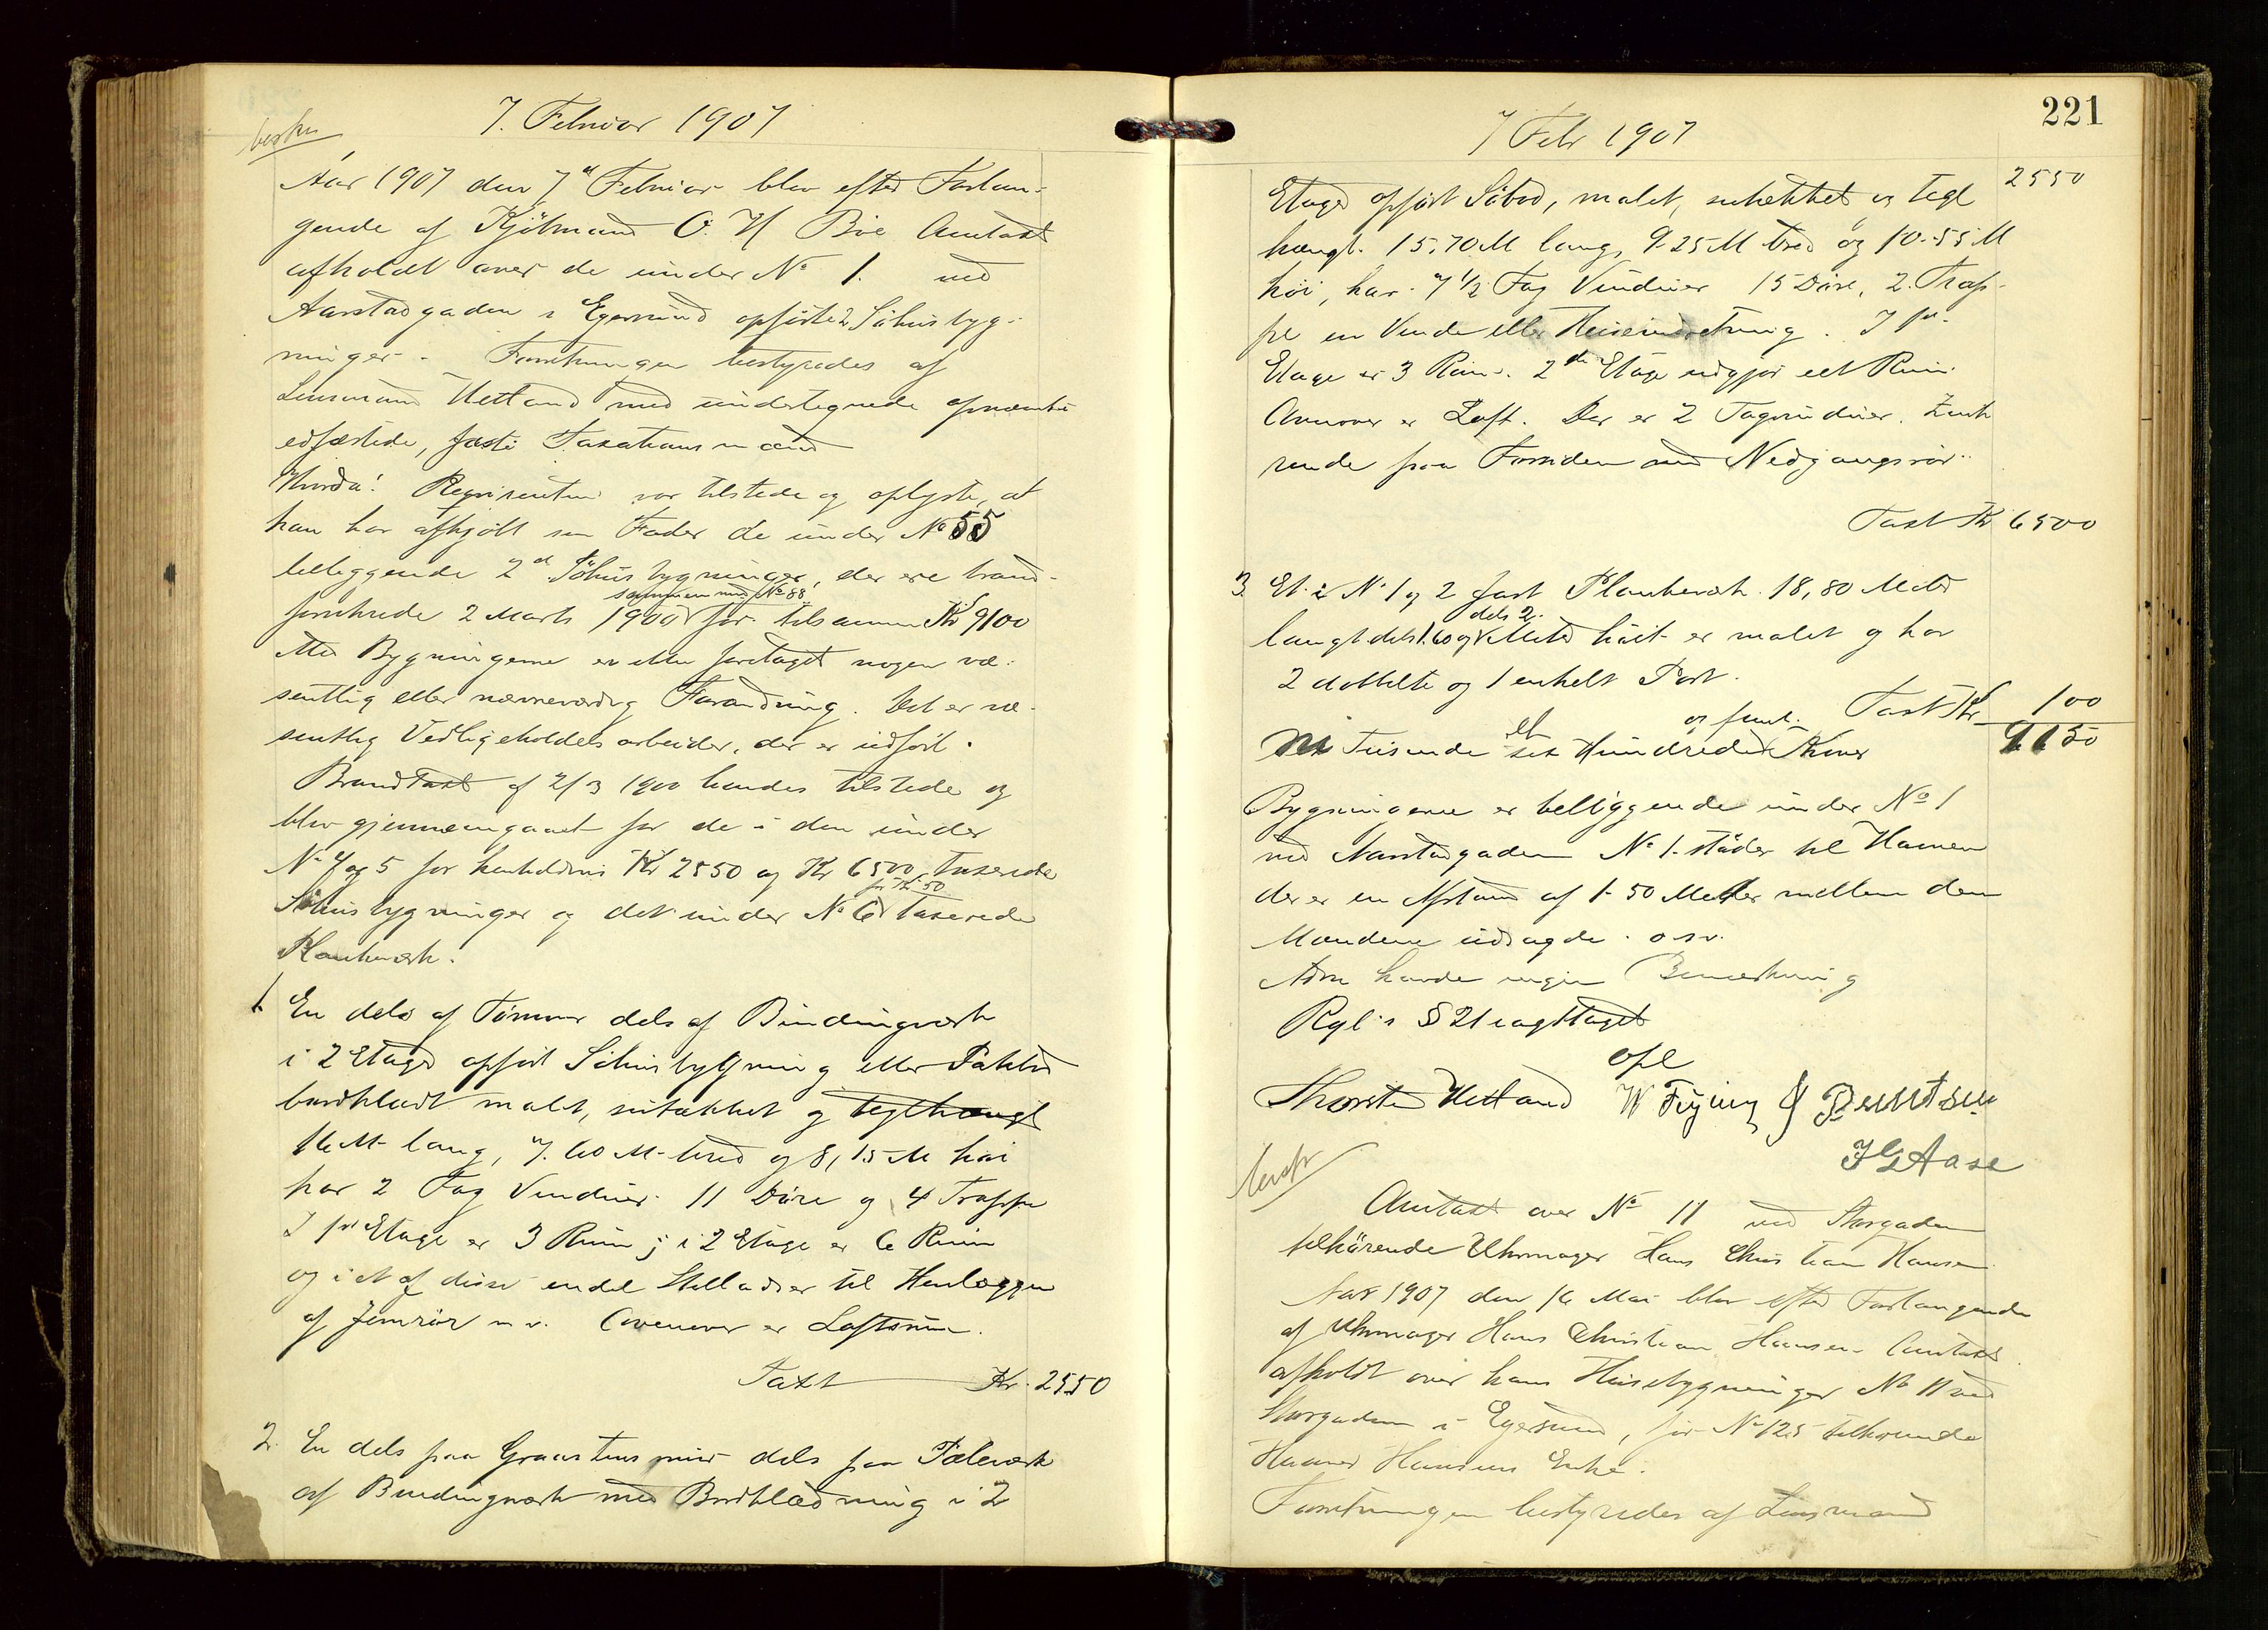 7. Februar 1907
Aar 1907 den 7d Februar blev efter Forlan-
gende af Kjöbmand O. H. Böe Omtaxt
afholdt over de under No 1. ved
Aarstadgaden i Egersund opførte 2 Söhusbyg-
ninger. Forretningen bestyredes af
Lensmand Hetland med undertegnede opnævnte
edfæstede, faste Taxationsmænd
Hvorda! Reqvirenten var tilstede og oplyste, at
han har afkjøbt sin Fader de under No 55
beliggende 2d Söhusbygninger, der ere brand-
forsikrede 2 Marts 1900 sammen med No 88 for tilsammen Kr 9100
Med Bygningerne er ikke foretaget nogen væ-
sentlig eller nævneværdig Forandring. Det er væ-
sentlig Vedligeholdelsarbeider, der er udført.
Brandtaxt af 2/3 1900 havdes tilstede og
blev gjennemgaaet for de i den under
No 4 og 5 for henholdsvis Kr 2550 og Kr 6500 taxerede
Söhusbygninger og det under No 6 for Kr 50 taxerede
Plankeværk.
1. En dels af Tömmer dels af Bindingsværk
i 2 Etager opført Söhusbygning eller Pakbod
bordklædt malet, sutækket og teglhængt
16 M. lang, 7.60 M. bred og 8,15 M høi
har 2 Fag Vinduer 11 Döre og 4 Trapper
I 1ste Etage er 3 Rum; i 2 Etage er 6 Rum
og i et af disse endel Stellader til Henlæggen
af Jernrör m v. Ovenover er Loftsrum.
Taxt Kr. 2550
2. En dels paa Graastensmur dels paa Pæleværk
af Bindingsværk med Bordklædning i 2
221
7 Febr 1907
2550
Etager opført Söbod, malet, sutækket og tegl
hængt. 15,70 M lang, 9.25 M bred og 10.55 M
høi, har 7 1/2 Fag Vinduer 15 Döre, 2 Trap-
per en Vinde eller Heiseindretning. I 1ste
Etage er 3 Rum. 2den Etage udgjør eet Rum.
Ovenover er Loft. Der er 2 Tagvinduer. Zink
rende paa Forsiden med Nedgangsrör.
Taxt Kr 6500
3. Et i No 1 og 2 fast Plankeværk 18,80 Meter
langt dels 1.60 og dels 2. Meter høit er malet og har
2 dobbelte og 1 enkelt Port.
Taxt Kr 100
Ni Tusinde et Hundrede og femti Kroner 9150
Bygningerne er beliggende under No 1
ved Aarstadgaden No 1. stöder til Havnen
der er en Afstand af 1.50 Meter mellem dem
Mændene udsagde o. s. v.
havde ingen Bemærkning
Rgl.s § 21 iagttaget
opl
Thorsten Hetland W Feyling J Berntsen
H G Aase
Omtaxt over No 11 ved Storgaden
tilhörende Uhrmager Hans Christian Hansen
Aar 1907 den 16 Mai blev efter Forlangende
af Uhrmager Hans Christian Hansen Omtaxt
afholdt over hans Husebygninger No 11 ved
Storgaden i Egersund, før No 125 tilhörende
Hansens Enke.
Forretningen bestyredes af Lensmand